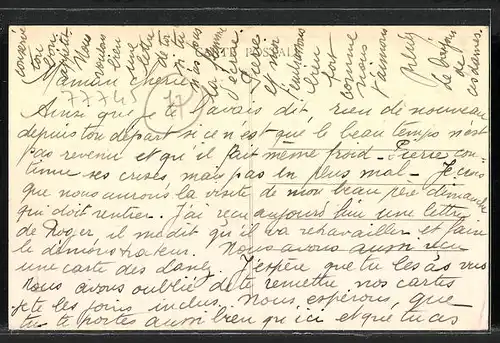 CARTE POSTALE
77745
Maman chérie
Ainsi que je te l'avais dit, rien de nouveau
depuis ton départ si ce n'est que le beau temps n'est
pas revenu et qu'il fait même froid - Pierre con-
tinue ses crises, mais pas en plus mal - Je crois
que nous aurons la visite de mon beau père dimanche
qui doit rentrer. J'ai reçu aujourd'hui une lettre
de Roger, il me dit qu'il va retravailler et faire
le démonstrateur. Nous avons aussi reçu
une carte des J'espère que tu les as vus
Nous avons oublié de te remettre nos cartes
je te les joins inclus. Nous espérons que
tu te portes aussi bien qu'ici et que tu as
conservé
ton
bon
appétit
Nous
voulons
bien
une
lettre
de toi
si tu
n'as pas
la flemme
d'écrire
Pierre
et moi
t'embrassons
bien
fort
comme
nous
t'aimons
de
ces dames